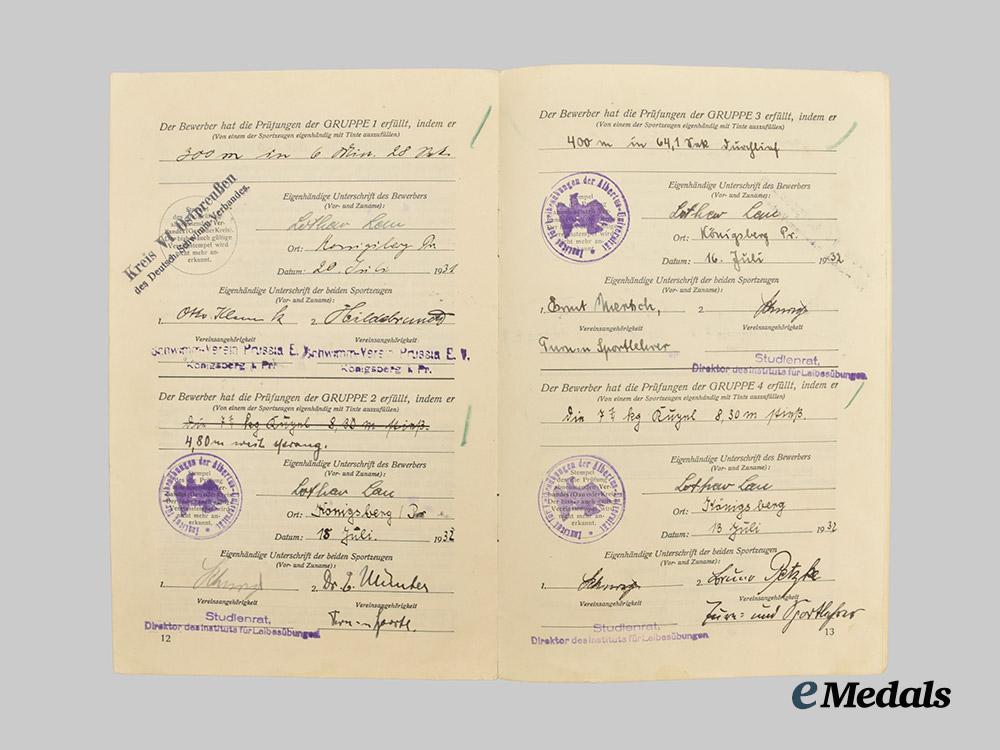 Der Bewerber hat die Prüfungen der GRUPPE 1 erfüllt, indem er
(Von einem der Sportzeugen eigenhändig mit Tinte auszufüllen)
300 m in 6 Min. 28 Sek.
Kreis VI Ostpreußen
des Deutsch. Schwimm-Verbandes.
Eigenhändige Unterschrift des Bewerbers
(Vor- und Zuname):
Lothar Lau
Ort: Königsberg Pr
Datum: 20 Juli 1931
Eigenhändige Unterschrift der beiden Sportzeugen
(Vor- und Zuname):
1. Otto Klein 2. Hildebrandt
Vereinsangehörigkeit Vereinsangehörigkeit
Schwimm-Verein Prussia E. Schwimm-Verein Prussia E. V.
Königsberg i. Pr. Königsberg i. Pr.
Der Bewerber hat die Prüfungen der GRUPPE 2 erfüllt, indem er
(Von einem der Sportzeugen eigenhändig mit Tinte auszufüllen)
die 7¼ kg Kugel 8,30 m stieß.
4,80 m weit sprang.
Institut für Leibesübungen der Albertus-Universität
Eigenhändige Unterschrift des Bewerbers
(Vor- und Zuname):
Lothar Lau
Ort: Königsberg / Pr
Datum: 15 Juli. 1932
Eigenhändige Unterschrift der beiden Sportzeugen
(Vor- und Zuname):
1. 2. Dr. E. Münter
Vereinsangehörigkeit Vereinsangehörigkeit
Studienrat,
Direktor des Instituts für Leibesübungen.
12
Der Bewerber hat die Prüfungen der GRUPPE 3 erfüllt, indem er
(Von einem der Sportzeugen eigenhändig mit Tinte auszufüllen)
400 m in 64,1 Sek durchlief
Institut für Leibesübungen der Albertus-Universität
Eigenhändige Unterschrift des Bewerbers
(Vor- und Zuname):
Lothar Lau
Ort: Königsberg Pr.
Datum: 16. Juli 1932
Eigenhändige Unterschrift der beiden Sportzeugen
(Vor- und Zuname):
1. Ernst 2
Vereinsangehörigkeit Vereinsangehörigkeit
Turn- u Sportlehrer
Studienrat,
Direktor des Instituts für Leibesübungen.
Der Bewerber hat die Prüfungen der GRUPPE 4 erfüllt, indem er
(Von einem der Sportzeugen eigenhändig mit Tinte auszufüllen)
die 7¼ kg Kugel 8,30 m stieß
Institut für Leibesübungen der Albertus-Universität
Eigenhändige Unterschrift des Bewerbers
(Vor- und Zuname):
Lothar Lau
Ort: Königsberg
Datum: 13 Juli 1932
Eigenhändige Unterschrift der beiden Sportzeugen
(Vor- und Zuname):
1. 2. Bruno
Vereinsangehörigkeit Vereinsangehörigkeit
Turn- und Sportlehrer
Studienrat,
Direktor des Instituts für Leibesübungen.
13
eMedals